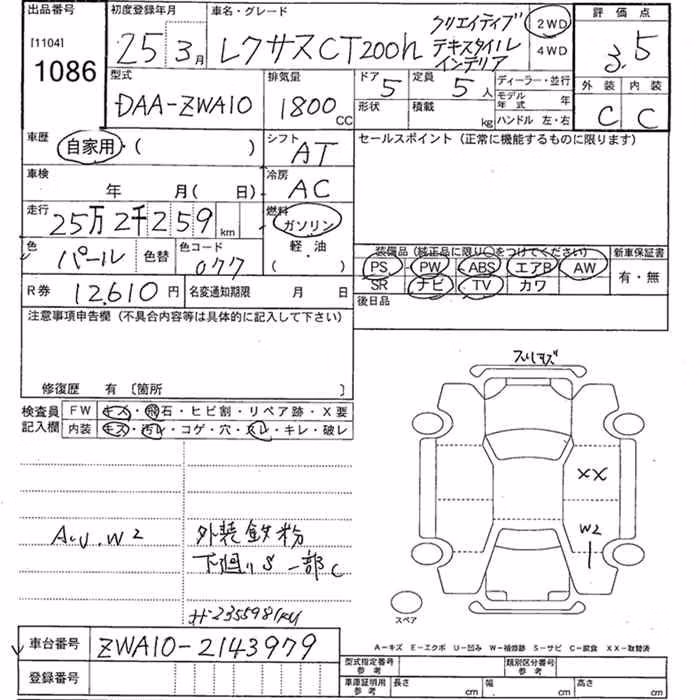 出品番号 初度登録年月 車名・グレード 評価点
[1104]
1086
25 3月 レクサスCT200h クリエイティブ 2WD 3.5
テキスタイル 4WD
インテリア
型式 排気量 ドア 定員 ディーラー・並行 外装 内装
DAA-ZWA10 1800CC 5 5人 モデル年式 年 C C
形状 積載 kg ハンドル 左・右
車歴 自家用・( ) シフト AT セールスポイント (正常に機能するものに限ります)
車検 年 月( 日) 冷房 AC
走行 25万2千259km 燃料 ガソリン
軽・油
( ・ )
色 パール 色替 色コード 077
装備品 (純正品に限り○をつけてください) 新車保証書
PS PW ABS エアB AW 有・無
SR ナビ TV カワ
R券 12,610円 名変通知期限 月 日 後日品
注意事項申告欄 (不具合内容等は具体的に記入して下さい)
修復歴 有 〔箇所 〕
検査員 FW キズ・飛石・ヒビ割・リペア跡・X要
記入欄 内装 キズ・汚レ・コゲ・穴・スレ・キレ・破レ
スリキズ
XX
W2
A.U.W2 外装鉄粉
下廻りS一部C
スペア
車台番号 ZWA10-2143979
登録番号
A-キズ E-エクボ U-凹み W-補修跡 S-サビ C-腐食 XX-取替済
型式指定番号 参考 類別区分番号 参考
車庫証明用 参考 長さ cm 幅 cm 高さ cm